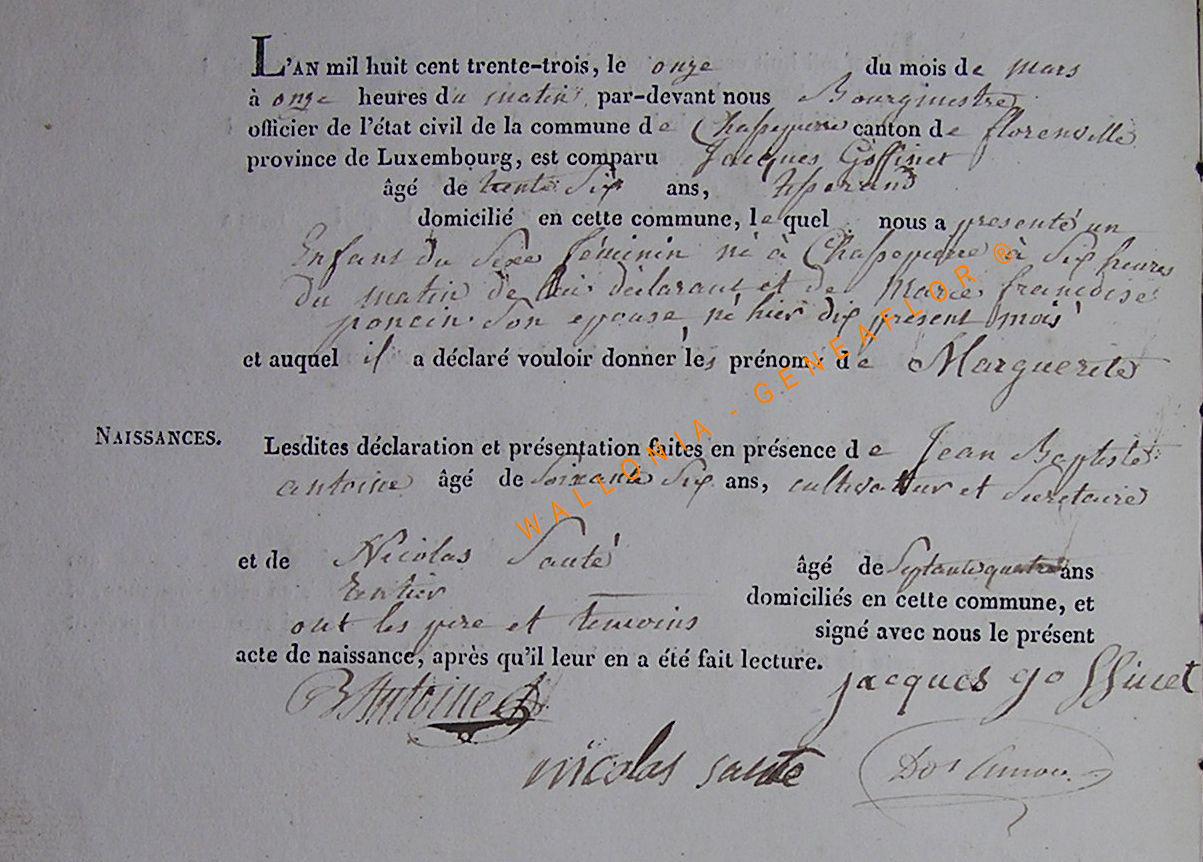 L'AN mil huit cent trente-trois, le onze du mois de mars
à onze heures du matin par-devant nous Bourgmestre
officier de l'état civil de la commune de Chassepierre canton de florenville
province de Luxembourg, est comparu Jacques Goffinet
âgé de trente Six ans,
domicilié en cette commune, lequel nous a presenté un
Enfant du Sexe féminin né à Chassepierre à Six heures
du matin de lui déclarant et de Marie françoise
poncin Son epouse né hier dix présent mois
et auquel il a déclaré vouloir donner les prénoms de Marguerite
NAISSANCES.
Lesdites déclaration et présentation faites en présence de Jean Baptiste
antoine âgé de Soixante Six ans, cultivateur et Secretaire
et de Nicolas Sauté âgé de Septante quatre ans
Rentier domiciliés en cette commune, et
ont les pere et temoins signé avec nous le présent
acte de naissance, après qu'il leur en a été fait lecture.
BAntoine jacques goffinet
nicolas sauté
WALLONIA - GENEAFLOR ®